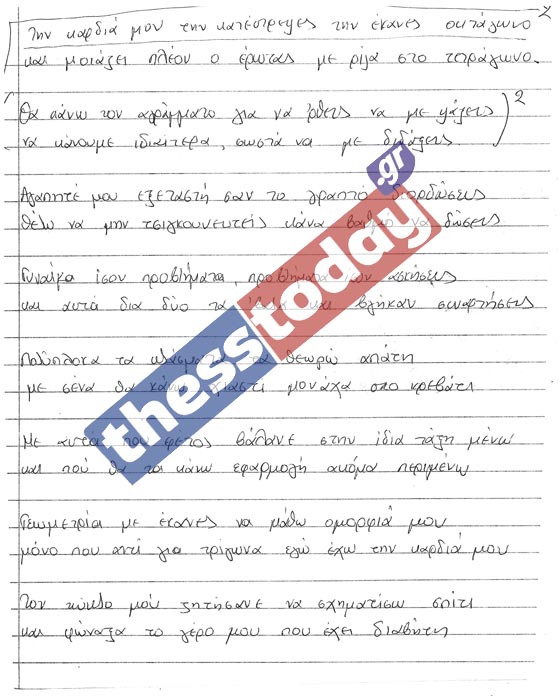 2
Την καρδιά μου την κατέστρεψες την έκανες οκτάγωνο
και μοιάζει πλέον ο έρωτας με ρίζα στο τετράγωνο.
Θα κάνω τον αγράμματο για να ρθεις να με ψάξεις
να κάνουμε ιδιαίτερα, σωστά να με διδάξεις.
2
Αγαπητέ μου εξεταστή σαν το γραπτό διορθώσεις
θέλω να μην τσιγκουνευτείς κάνα βαθμό να δώσεις
Γυναίκα ίσον προβλήματα, προβλήματα ίσον ασκήσεις
και αυτά δια δύο τα και βγήκαν συναρτήσεις
Πολύπλοκα τα κλάσματα τα θεωρώ απάτη
με σένα θα κάνω χιαστί μονάχα στο κρεβάτι
Με αυτά που φέτος βάλανε στην ίδια τάξη μένω
και πού θα τα κάνω εφαρμογή ακόμα περιμένω
Γεωμετρία με έκανες να μάθω ομορφιά μου
μόνο που αντί για τρίγωνα εγώ έχω την καρδιά μου
Τον κύκλο μού ζητήσανε να σχηματίσω σπίτι
και φώναξα το γέρο μου που έχει διαβήτη
thesstoday.gr